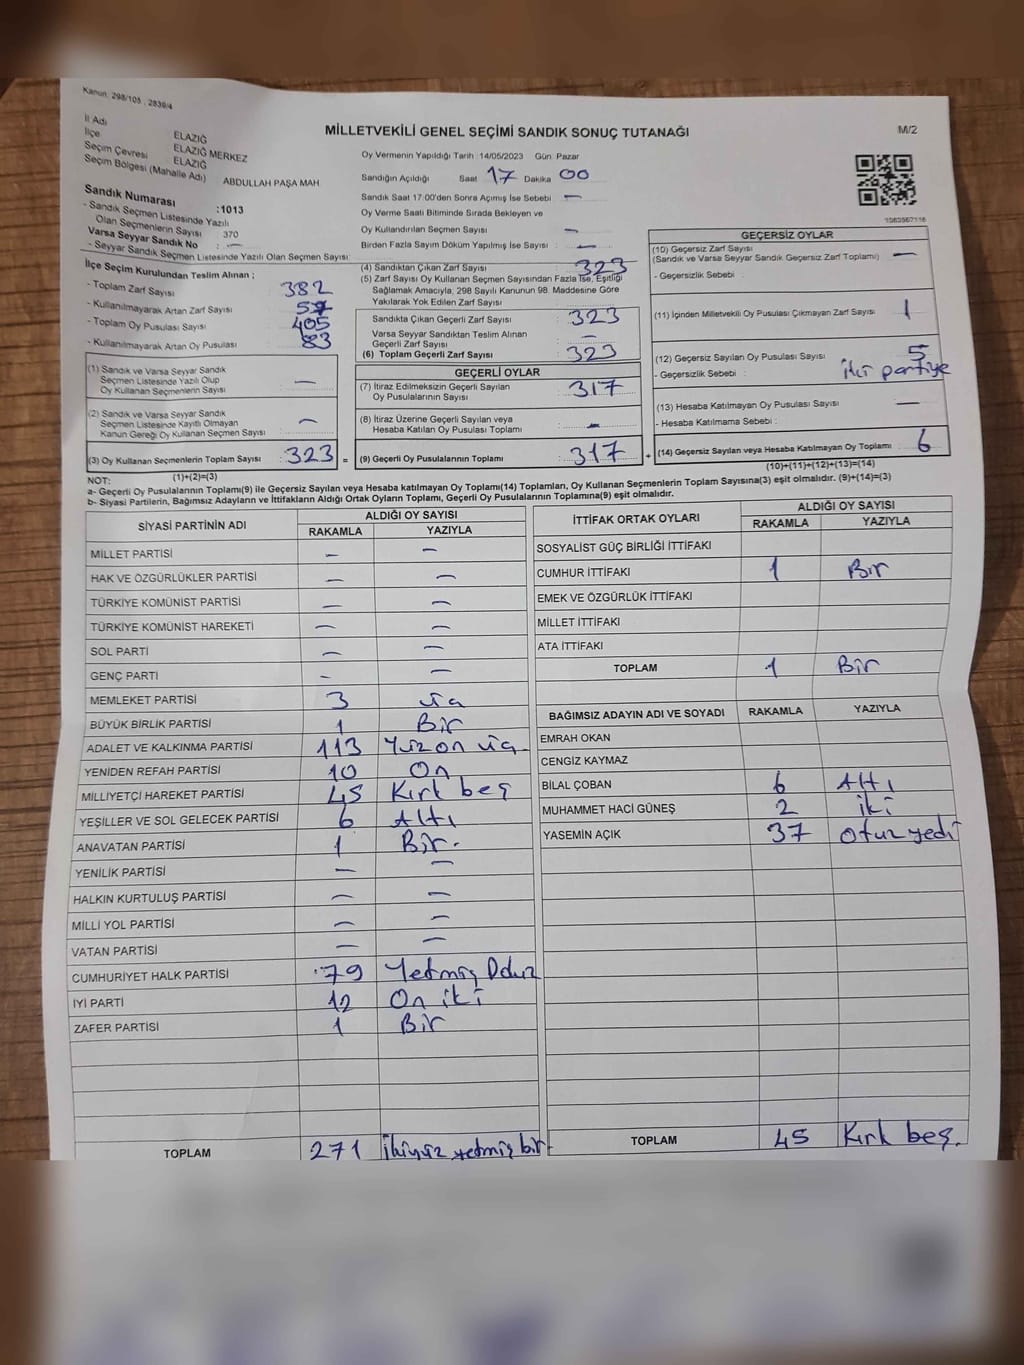 Kanun: 298/105 , 2839/4
MİLLETVEKİLİ GENEL SEÇİMİ SANDIK SONUÇ TUTANAĞI
M/2
İl Adı ELAZIĞ
İlçe ELAZIĞ MERKEZ
Seçim Çevresi ELAZIĞ
Seçim Bölgesi (Mahalle Adı) : ABDULLAH PAŞA MAH
Sandık Numarası :1013
- Sandık Seçmen Listesinde Yazılı
Olan Seçmenlerin Sayısı : 370
Varsa Seyyar Sandık No : —
- Seyyar Sandık Seçmen Listesinde Yazılı Olan Seçmen Sayısı :
İlçe Seçim Kurulundan Teslim Alınan ;
- Toplam Zarf Sayısı : 382
- Kullanılmayarak Artan Zarf Sayısı :
- Toplam Oy Pusulası Sayısı : 405
- Kullanılmayarak Artan Oy Pusulası : 83
(1) Sandık ve Varsa Seyyar Sandık
Seçmen Listesinde Yazılı Olup
Oy Kullanan Seçmenlerin Sayısı : —
(2) Sandık ve Varsa Seyyar Sandık
Seçmen Listesinde Kayıtlı Olmayan
Kanun Gereği Oy Kullanan Seçmen Sayısı : —
(3) Oy Kullanan Seçmenlerin Toplam Sayısı : 323 =
(1)+(2)=(3)
Oy Vermenin Yapıldığı Tarih : 14/05/2023 Gün: Pazar
Sandığın Açıldığı Saat 17 Dakika 00
Sandık Saat 17:00'den Sonra Açılmış İse Sebebi : —
Oy Verme Saati Bitiminde Sırada Bekleyen ve
Oy Kullandırılan Seçmen Sayısı : —
Birden Fazla Sayım Döküm Yapılmış İse Sayısı : —
(4) Sandıktan Çıkan Zarf Sayısı : 323
(5) Zarf Sayısı Oy Kullanan Seçmen Sayısından Fazla İse, Eşitliği
Sağlamak Amacıyla, 298 Sayılı Kanunun 98. Maddesine Göre
Yakılarak Yok Edilen Zarf Sayısı :
Sandıkta Çıkan Geçerli Zarf Sayısı : 323
Varsa Seyyar Sandıktan Teslim Alınan
Geçerli Zarf Sayısı : —
(6) Toplam Geçerli Zarf Sayısı : 323
GEÇERLİ OYLAR
(7) İtiraz Edilmeksizin Geçerli Sayılan
Oy Pusulalarının Sayısı : 317
(8) İtiraz Üzerine Geçerli Sayılan veya
Hesaba Katılan Oy Pusulası Toplamı : —
(9) Geçerli Oy Pusulalarının Toplamı : 317 +
1083567116
GEÇERSİZ OYLAR
(10) Geçersiz Zarf Sayısı
(Sandık ve Varsa Seyyar Sandık Geçersiz Zarf Toplamı) : —
- Geçersizlik Sebebi :
(11) İçinden Milletvekili Oy Pusulası Çıkmayan Zarf Sayısı : 1
(12) Geçersiz Sayılan Oy Pusulası Sayısı : 5
- Geçersizlik Sebebi : İki partiye
(13) Hesaba Katılmayan Oy Pusulası Sayısı : —
- Hesaba Katılmama Sebebi :
(14) Geçersiz Sayılan veya Hesaba Katılmayan Oy Toplamı : 6
(10)+(11)+(12)+(13)=(14)
NOT:
a- Geçerli Oy Pusulalarının Toplamı(9) ile Geçersiz Sayılan veya Hesaba katılmayan Oy Toplamı(14) Toplamları, Oy Kullanan Seçmenlerin Toplam Sayısına(3) eşit olmalıdır. (9)+(14)=(3)
b- Siyasi Partilerin, Bağımsız Adayların ve İttifakların Aldığı Ortak Oyların Toplamı, Geçerli Oy Pusulalarının Toplamına(9) eşit olmalıdır.
SİYASİ PARTİNİN ADI ALDIĞI OY SAYISI
RAKAMLA YAZIYLA
MİLLET PARTİSİ — —
HAK VE ÖZGÜRLÜKLER PARTİSİ — —
TÜRKİYE KOMÜNİST PARTİSİ — —
TÜRKİYE KOMÜNİST HAREKETİ — —
SOL PARTİ — —
GENÇ PARTİ — —
MEMLEKET PARTİSİ 3 üç
BÜYÜK BİRLİK PARTİSİ 1 Bir
ADALET VE KALKINMA PARTİSİ 113 Yüz on üç
YENİDEN REFAH PARTİSİ 10 On
MİLLİYETÇİ HAREKET PARTİSİ 45 Kırk beş
YEŞİLLER VE SOL GELECEK PARTİSİ 6 Altı
ANAVATAN PARTİSİ 1 Bir.
YENİLİK PARTİSİ — —
HALKIN KURTULUŞ PARTİSİ — —
MİLLİ YOL PARTİSİ — —
VATAN PARTİSİ — —
CUMHURİYET HALK PARTİSİ 79 Yetmiş Dokuz
İYİ PARTİ 12 On iki
ZAFER PARTİSİ 1 Bir
TOPLAM 271 İkiyüz yetmiş bir
İTTİFAK ORTAK OYLARI ALDIĞI OY SAYISI
RAKAMLA YAZIYLA
SOSYALİST GÜÇ BİRLİĞİ İTTİFAKI
CUMHUR İTTİFAKI 1 Bir
EMEK VE ÖZGÜRLÜK İTTİFAKI
MİLLET İTTİFAKI
ATA İTTİFAKI
TOPLAM 1 Bir
BAĞIMSIZ ADAYIN ADI VE SOYADI RAKAMLA YAZIYLA
EMRAH OKAN
CENGİZ KAYMAZ
BİLAL ÇOBAN 6 Altı
MUHAMMET HACİ GÜNEŞ 2 iki
YASEMİN AÇIK 37 otuz yedi
TOPLAM 45 Kırk beş.